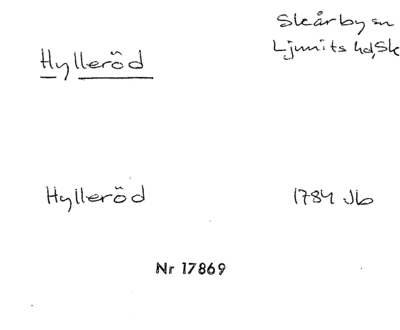 Hylleröd
Skårby sn
Ljunits hd, Sk
Hylleröd
1784 Jb
Nr 17869